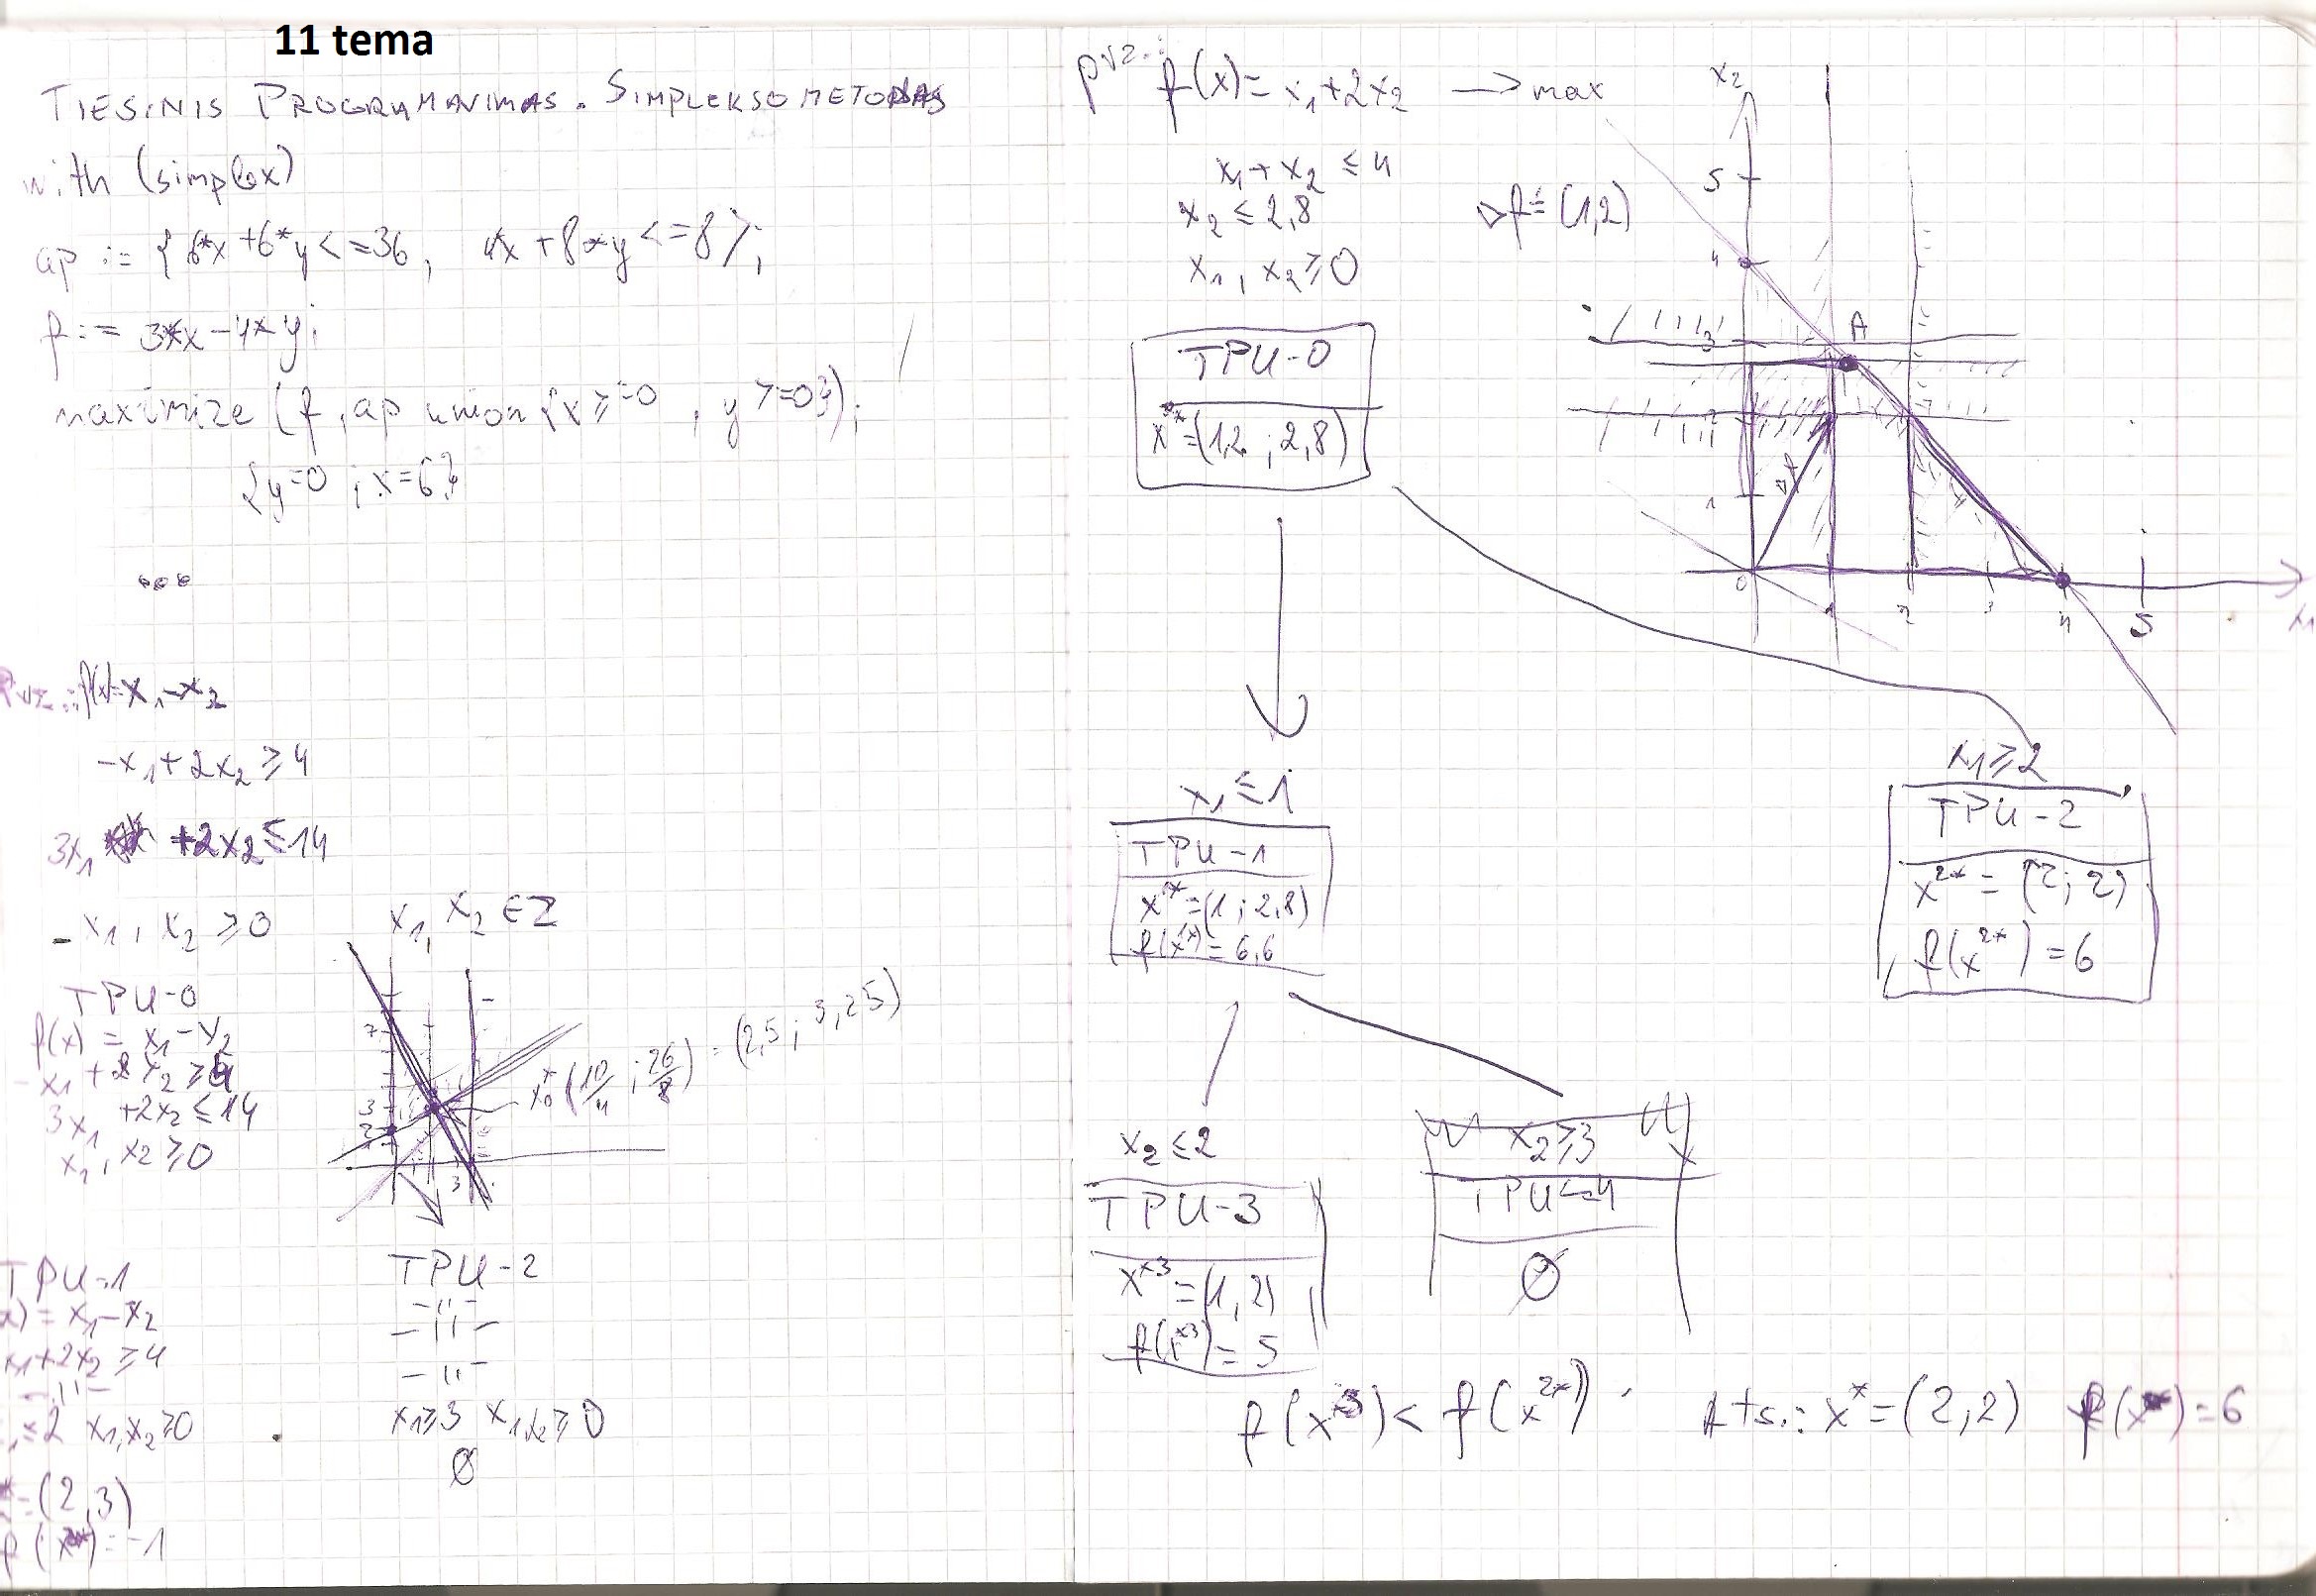 11 tema
TIESINIS PROGRAMAVIMAS. SIMPLEKSO METODAS
with (simplex)
ap := {6*x+6*y<=36, 4x+8*y<=8};
f := 3*x-4*y;
maximize (f, ap union {x>=0, y>=0});
{y=0 ; x=6}
...
Pvz.: f(x)=x₁-x₂
-x₁+2x₂≥4
3x₁ +2x₂≤14
- x₁, x₂ ≥0 x₁, x₂ ∈Z
TPU-0
f(x) = x₁-x₂
-x₁+2x₂≥4
3x₁+2x₂≤14
x₁, x₂≥0
7
3
2
3
x₀* (10/4 ; 26/8) = (2,5 ; 3,25)
TPU-1
x) = x₁-x₂
x₁+2x₂≥4
-11-
≤2 x₁,x₂≥0
*=(2,3)
f(x*)=-1
TPU-2
-11-
-11-
-11-
x₁≥3 x₁,x₂≥0
∅
pvz.: f(x)= x₁+2x₂ → max
x₁+x₂ ≤4
x₂ ≤ 2,8
x₁, x₂ ≥0
∇f = (1,2)
x₂
5
4
3
A
2
1
∇f
0 1 2 3 4 5
x₁
TPU-0
x*=(1,2 ; 2,8)
x₁ ≤1
TPU-1
x¹*=(1 ; 2,8)
f(x¹*) = 6,6
x₁≥2
TPU-2
x²* = (2; 2)
f(x²*) =6
x₂ ≤2
TPU-3
x*³=(1,2)
f(x*³)= 5
x₂≥3
TPU-4
∅
f(x*³) < f(x²*) Ats.: x*=(2,2) f(x*)=6